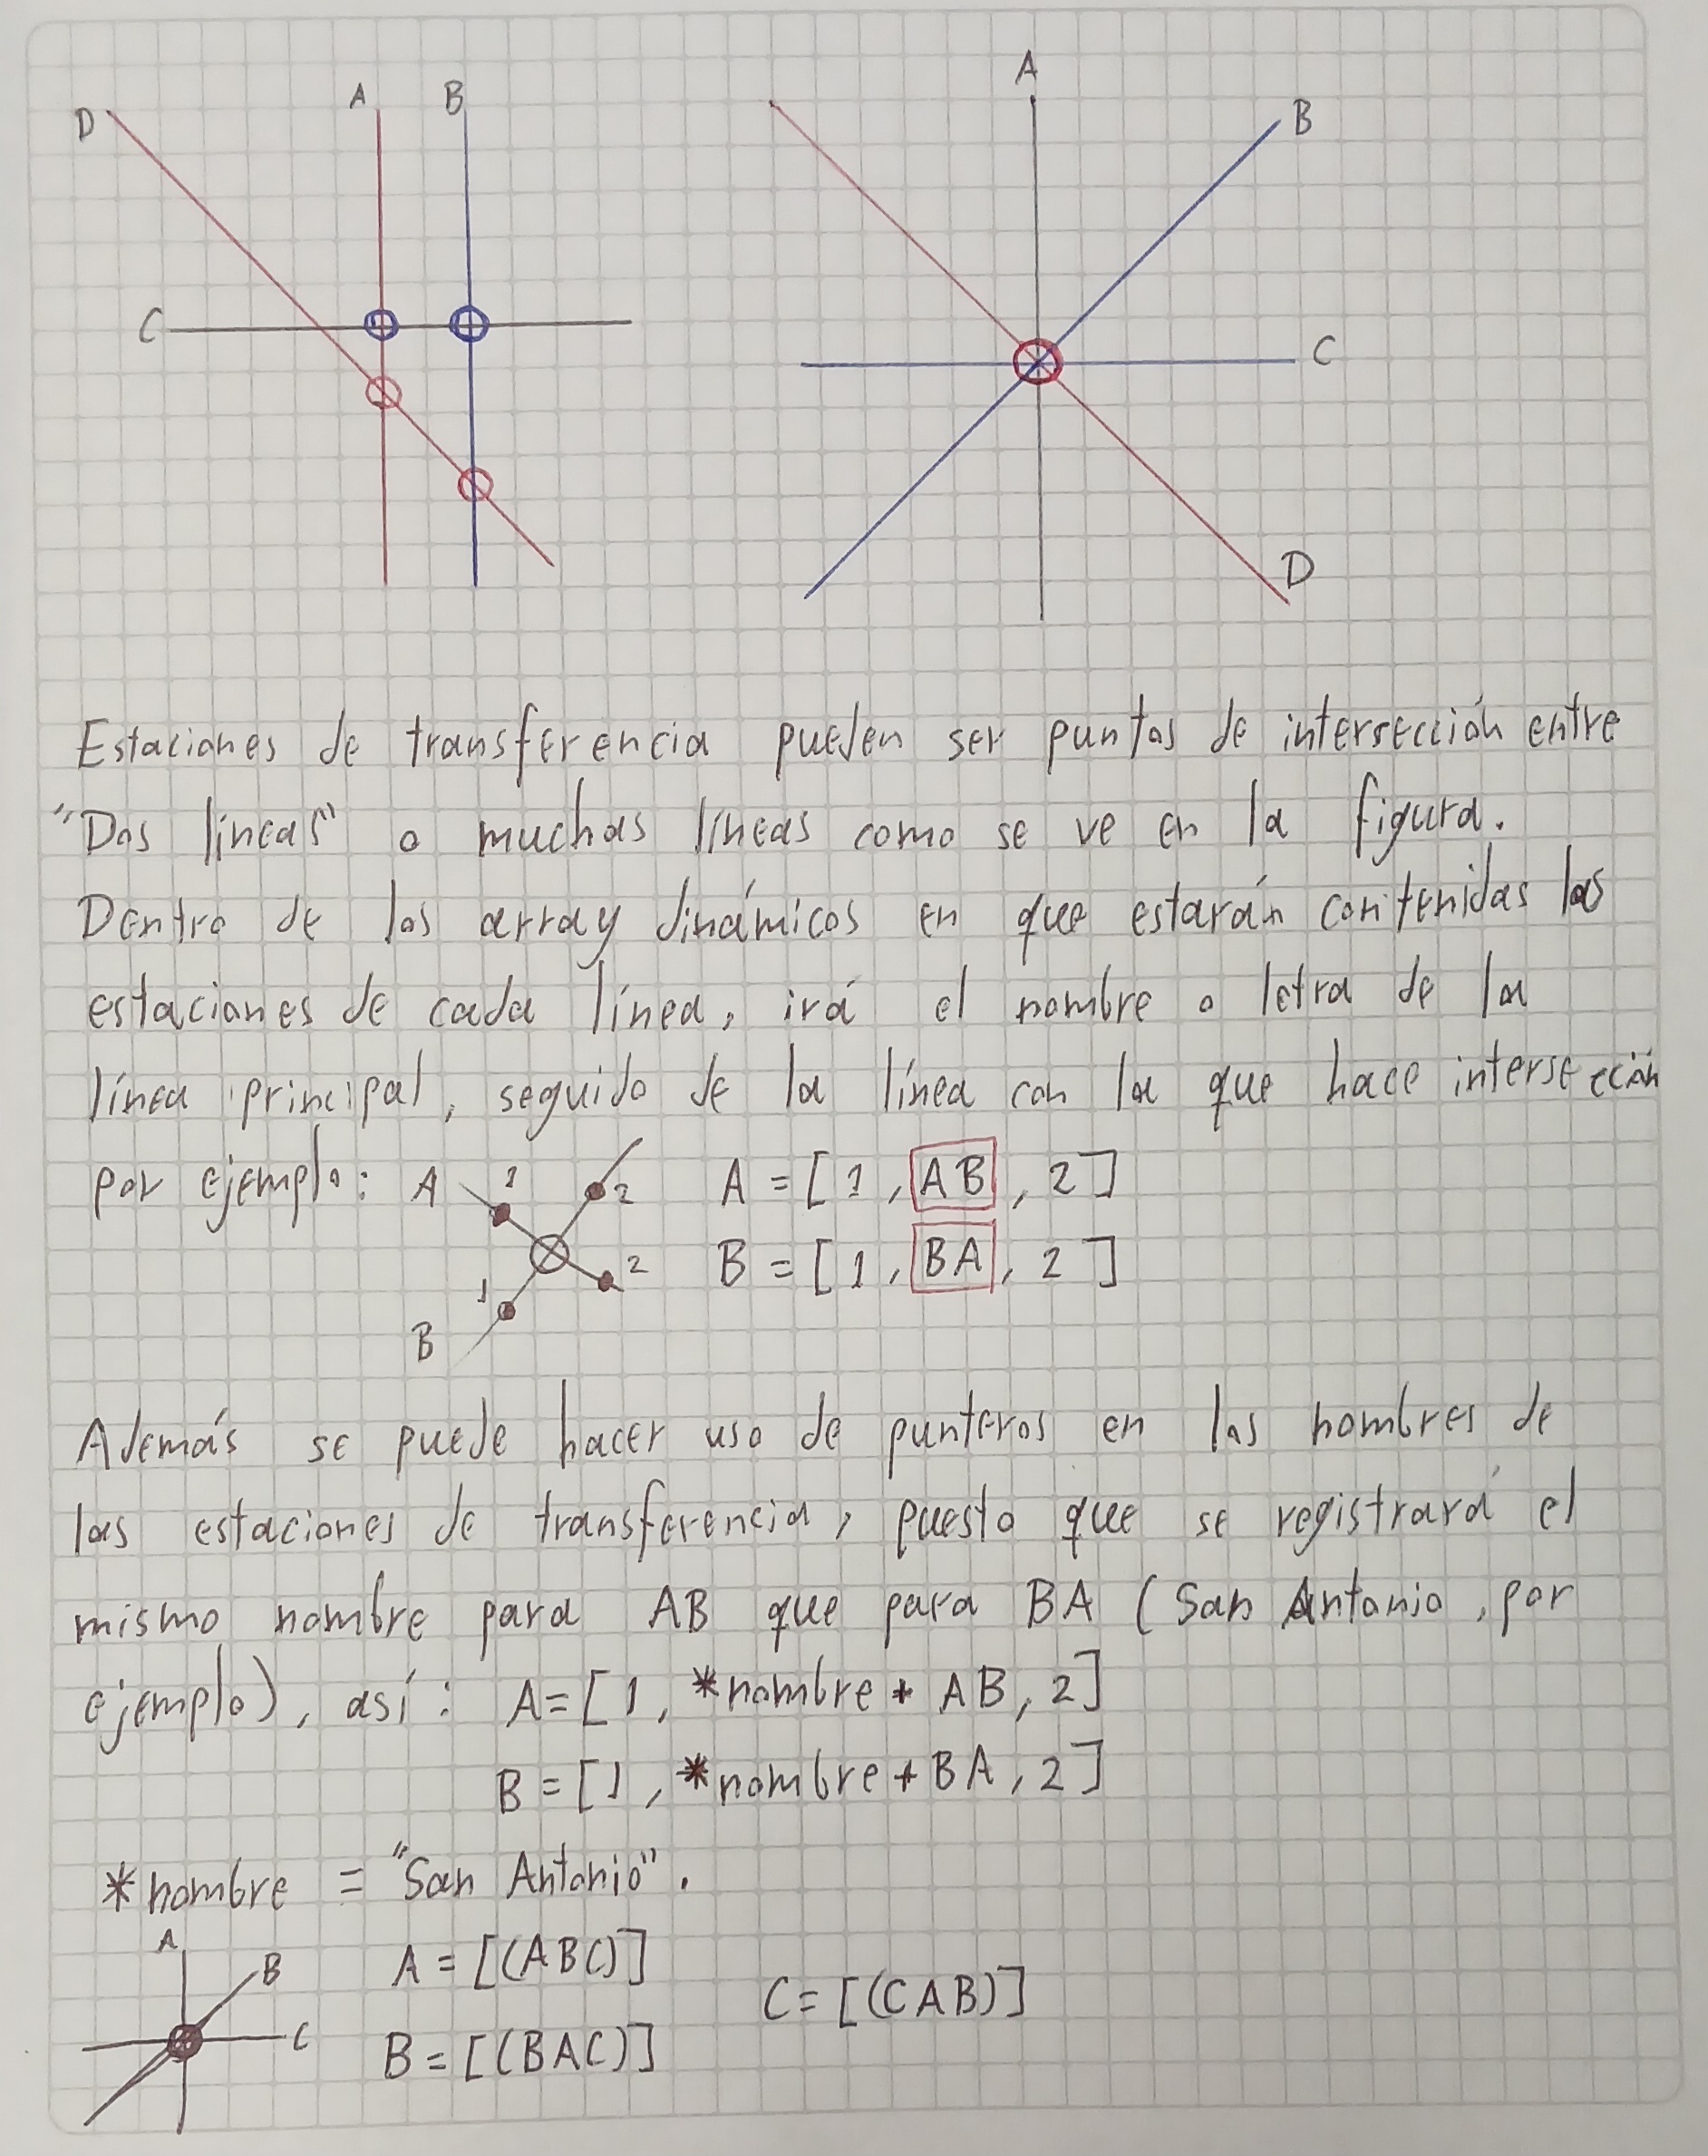 D A B
C
A
B
C
D
Estaciones de transferencia pueden ser puntos de intersección entre
"Dos líneas" o muchas líneas como se ve en la figura.
Dentro de los array dinámicos en que estarán contenidas las
estaciones de cada línea, irá el nombre o letra de la
línea principal, seguido de la línea con la que hace intersección
por ejemplo: A 1 2 A = [ 1 , AB , 2 ]
1 2 B = [ 1 , BA , 2 ]
B
Además se puede hacer uso de punteros en los nombres de
las estaciones de transferencia, puesto que se registrará el
mismo nombre para AB que para BA (San Antonio, por
ejemplo), así: A=[1, *nombre + AB, 2]
B=[1, *nombre + BA, 2]
*nombre = "San Antonio".
A B C
A = [(ABC)]
B = [(BAC)]
C = [(CAB)]